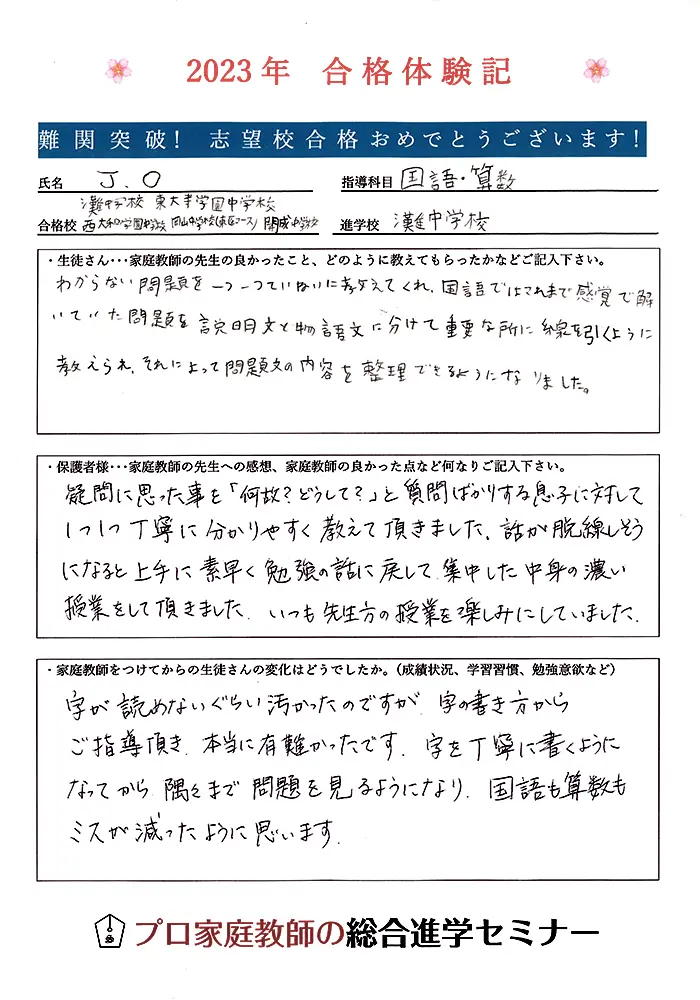 2023年 合格体験記
難関突破! 志望校合格おめでとうございます!
氏名 J.O 指導科目 国語・算数
灘中学校 東大寺学園中学校
合格校 西大和学園中学校 岡山中学校(東医コース) 開成中学校 進学校 灘中学校
・生徒さん・・・家庭教師の先生の良かったこと、どのように教えてもらったかなどご記入下さい。
わからない問題を一つ一つていねいに教えてくれ、国語ではこれまで感覚で解
いていた問題を説明文と物語文に分けて重要な所に線を引くように
教えられ、それによって問題文の内容を整理できるようになりました。
・保護者様・・・家庭教師の先生への感想、家庭教師の良かった点など何なりご記入下さい。
疑問に思った事を「何故?どうして?」と質問ばかりする息子に対して
1つ1つ丁寧に分かりやすく教えて頂きました。話が脱線しそう
になると上手に素早く勉強の話に戻して、集中した中身の濃い
授業をして頂きました。いつも先生方の授業を楽しみにしていました。
・家庭教師をつけてからの生徒さんの変化はどうでしたか。(成績状況、学習習慣、勉強意欲など)
字が読めないぐらい汚かったのですが、字の書き方から
ご指導頂き、本当に有難かったです。字を丁寧に書くように
なってから隅々まで問題を見るようになり、国語も算数も
ミスが減ったように思います。
プロ家庭教師の総合進学セミナー